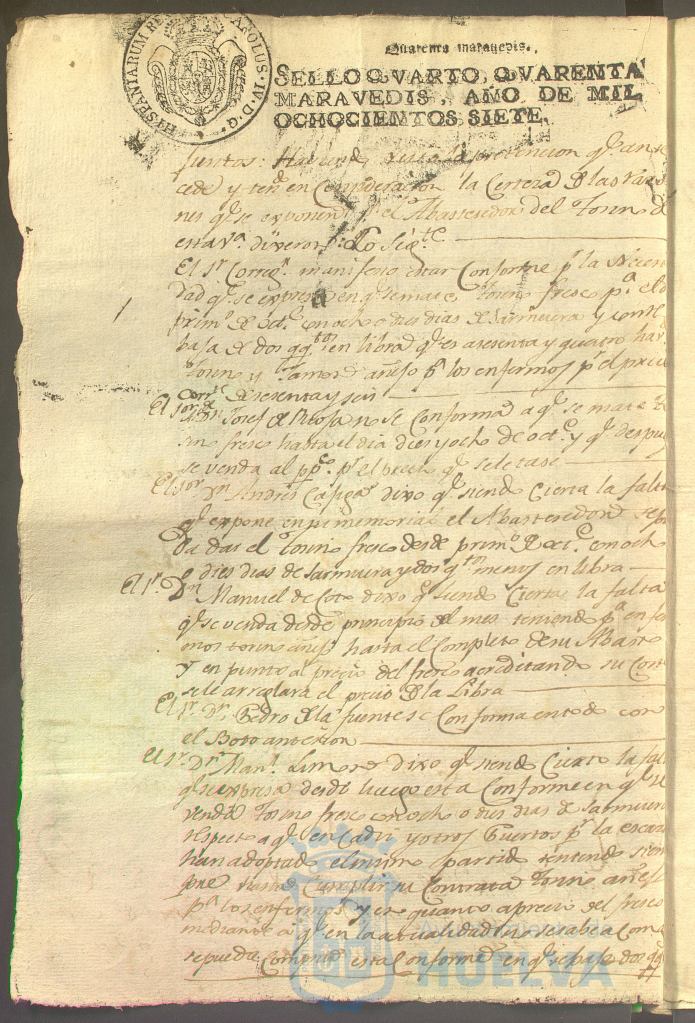 HISPANIARUM REX CAROLUS IV D G
Quarenta maravedis.
SELLO QVARTO, QVARENTA
MARAVEDIS, AÑO DE MIL
OCHOCIENTOS SIETE.
juntos: Haviendo la prevencion qe. ante
cede y tend en Consideracion la Certeza de las
nes qe. se exponen pr. el Abastesedor del Tosino de
esta va. dixeron: Lo Sigte.
El sr. Corregr. manifesto estar Conforme pr. la
dad qe. se expresa en qe. se mate Tosino fresco pa. el
primo. de octe. con ocho o dies dias de Sarmuera y con
baja de dos qqtos en libra qe. es a sesenta y quatro
tosino y añejo pa. los enfermos pr. el precio
corrte. de sesenta y seis
El sor. Dn. Josef de se Conforma a qe. se mate To
sino fresco hasta el dia dies y ocho de octe. y qe. despues
se venda al ppco. pr. el precio qe. se le tase
El sor. Dn. Andres dixo qe. siendo Cierta la falta
qe. expone en su memorial el Abastesedor se
da dar el tosino fresco desde primo. de oct. con ocho
o dies dias de Sarmuera y dos qtos menos en libra
El sr. Dn. Manuel de Coto dixo qe. siendo Cierta la falta
qe. se venda desde principio del mes teniendo pa. enfer
mos tosino añejo hasta el Completo de su Abasto
Y en punto al precio del fresco acreditando su Costo
se le arreglara el precio de la Libra
El sr. Dn. Pedro de la fuente se Conforma en todo con
el Boto anterior
El sr. Dn. Manl. dixo qe. siendo Cierto la falta
qe. se expresa desde luego esta Conforme en qe. se
venda Tosino fresco con ocho o dies dias de Sarmuera
respecto a qe. en Cadiz y otros Puertos pr. la escases
han adoptado el mismo partido teniendo siem
pre hasta Cumplir su Contrata Tosino añejo
pa. los enfermos y en quanto a precio del fresco
mediante a qe. en la actualidad no se sabe a como
se pueda Comprar esta Conforme en qe. se baje dos qqs
HUELVA